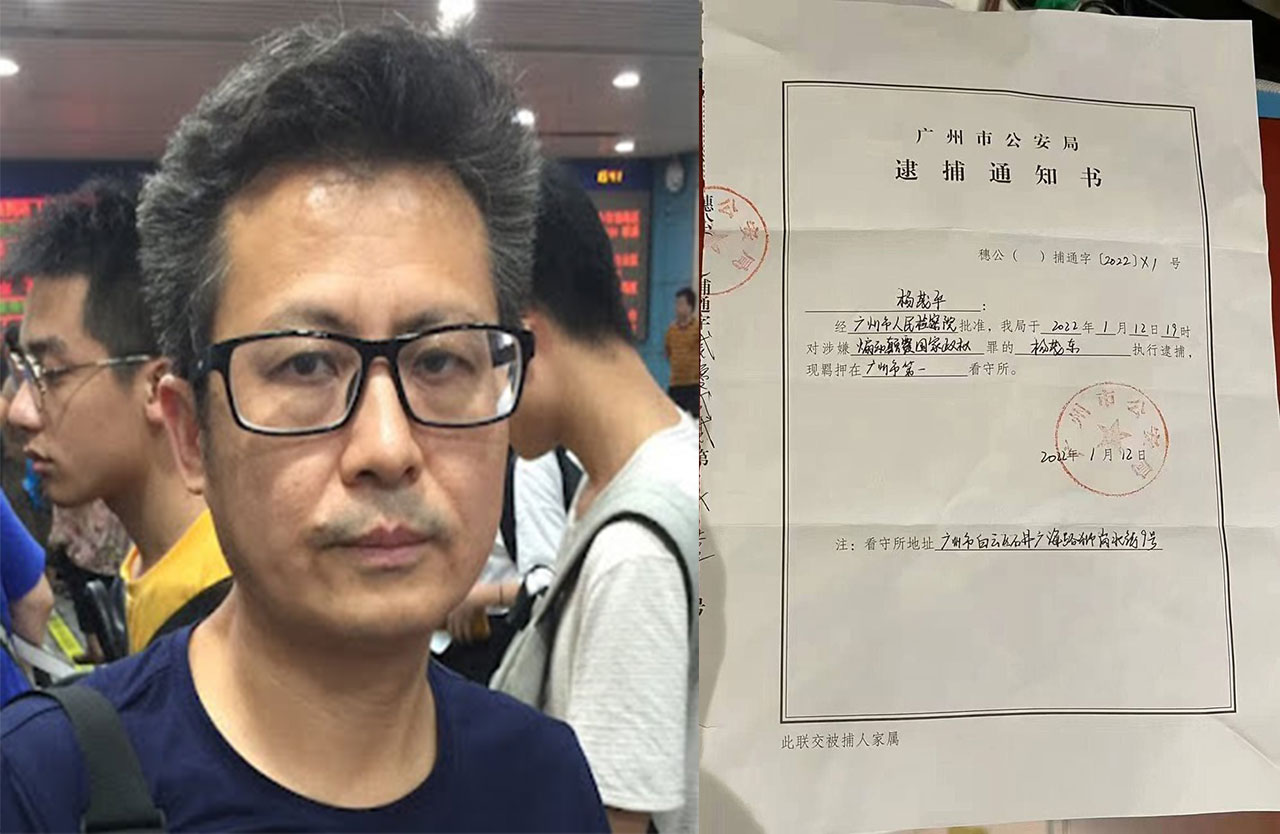 广州市公安局
逮捕通知书
穗公（ ）捕通字〔2022〕X1号
杨茂平：
经广州市人民检察院批准，我局于2022年1月12日19时
对涉嫌煽动颠覆国家政权罪的杨茂东执行逮捕，
现羁押在广州市第一看守所。
广州市公安局
2022年1月12日
注：看守所地址广州市白云区石井广海路狮岗水街9号
此联交被捕人家属
公安局
捕通字